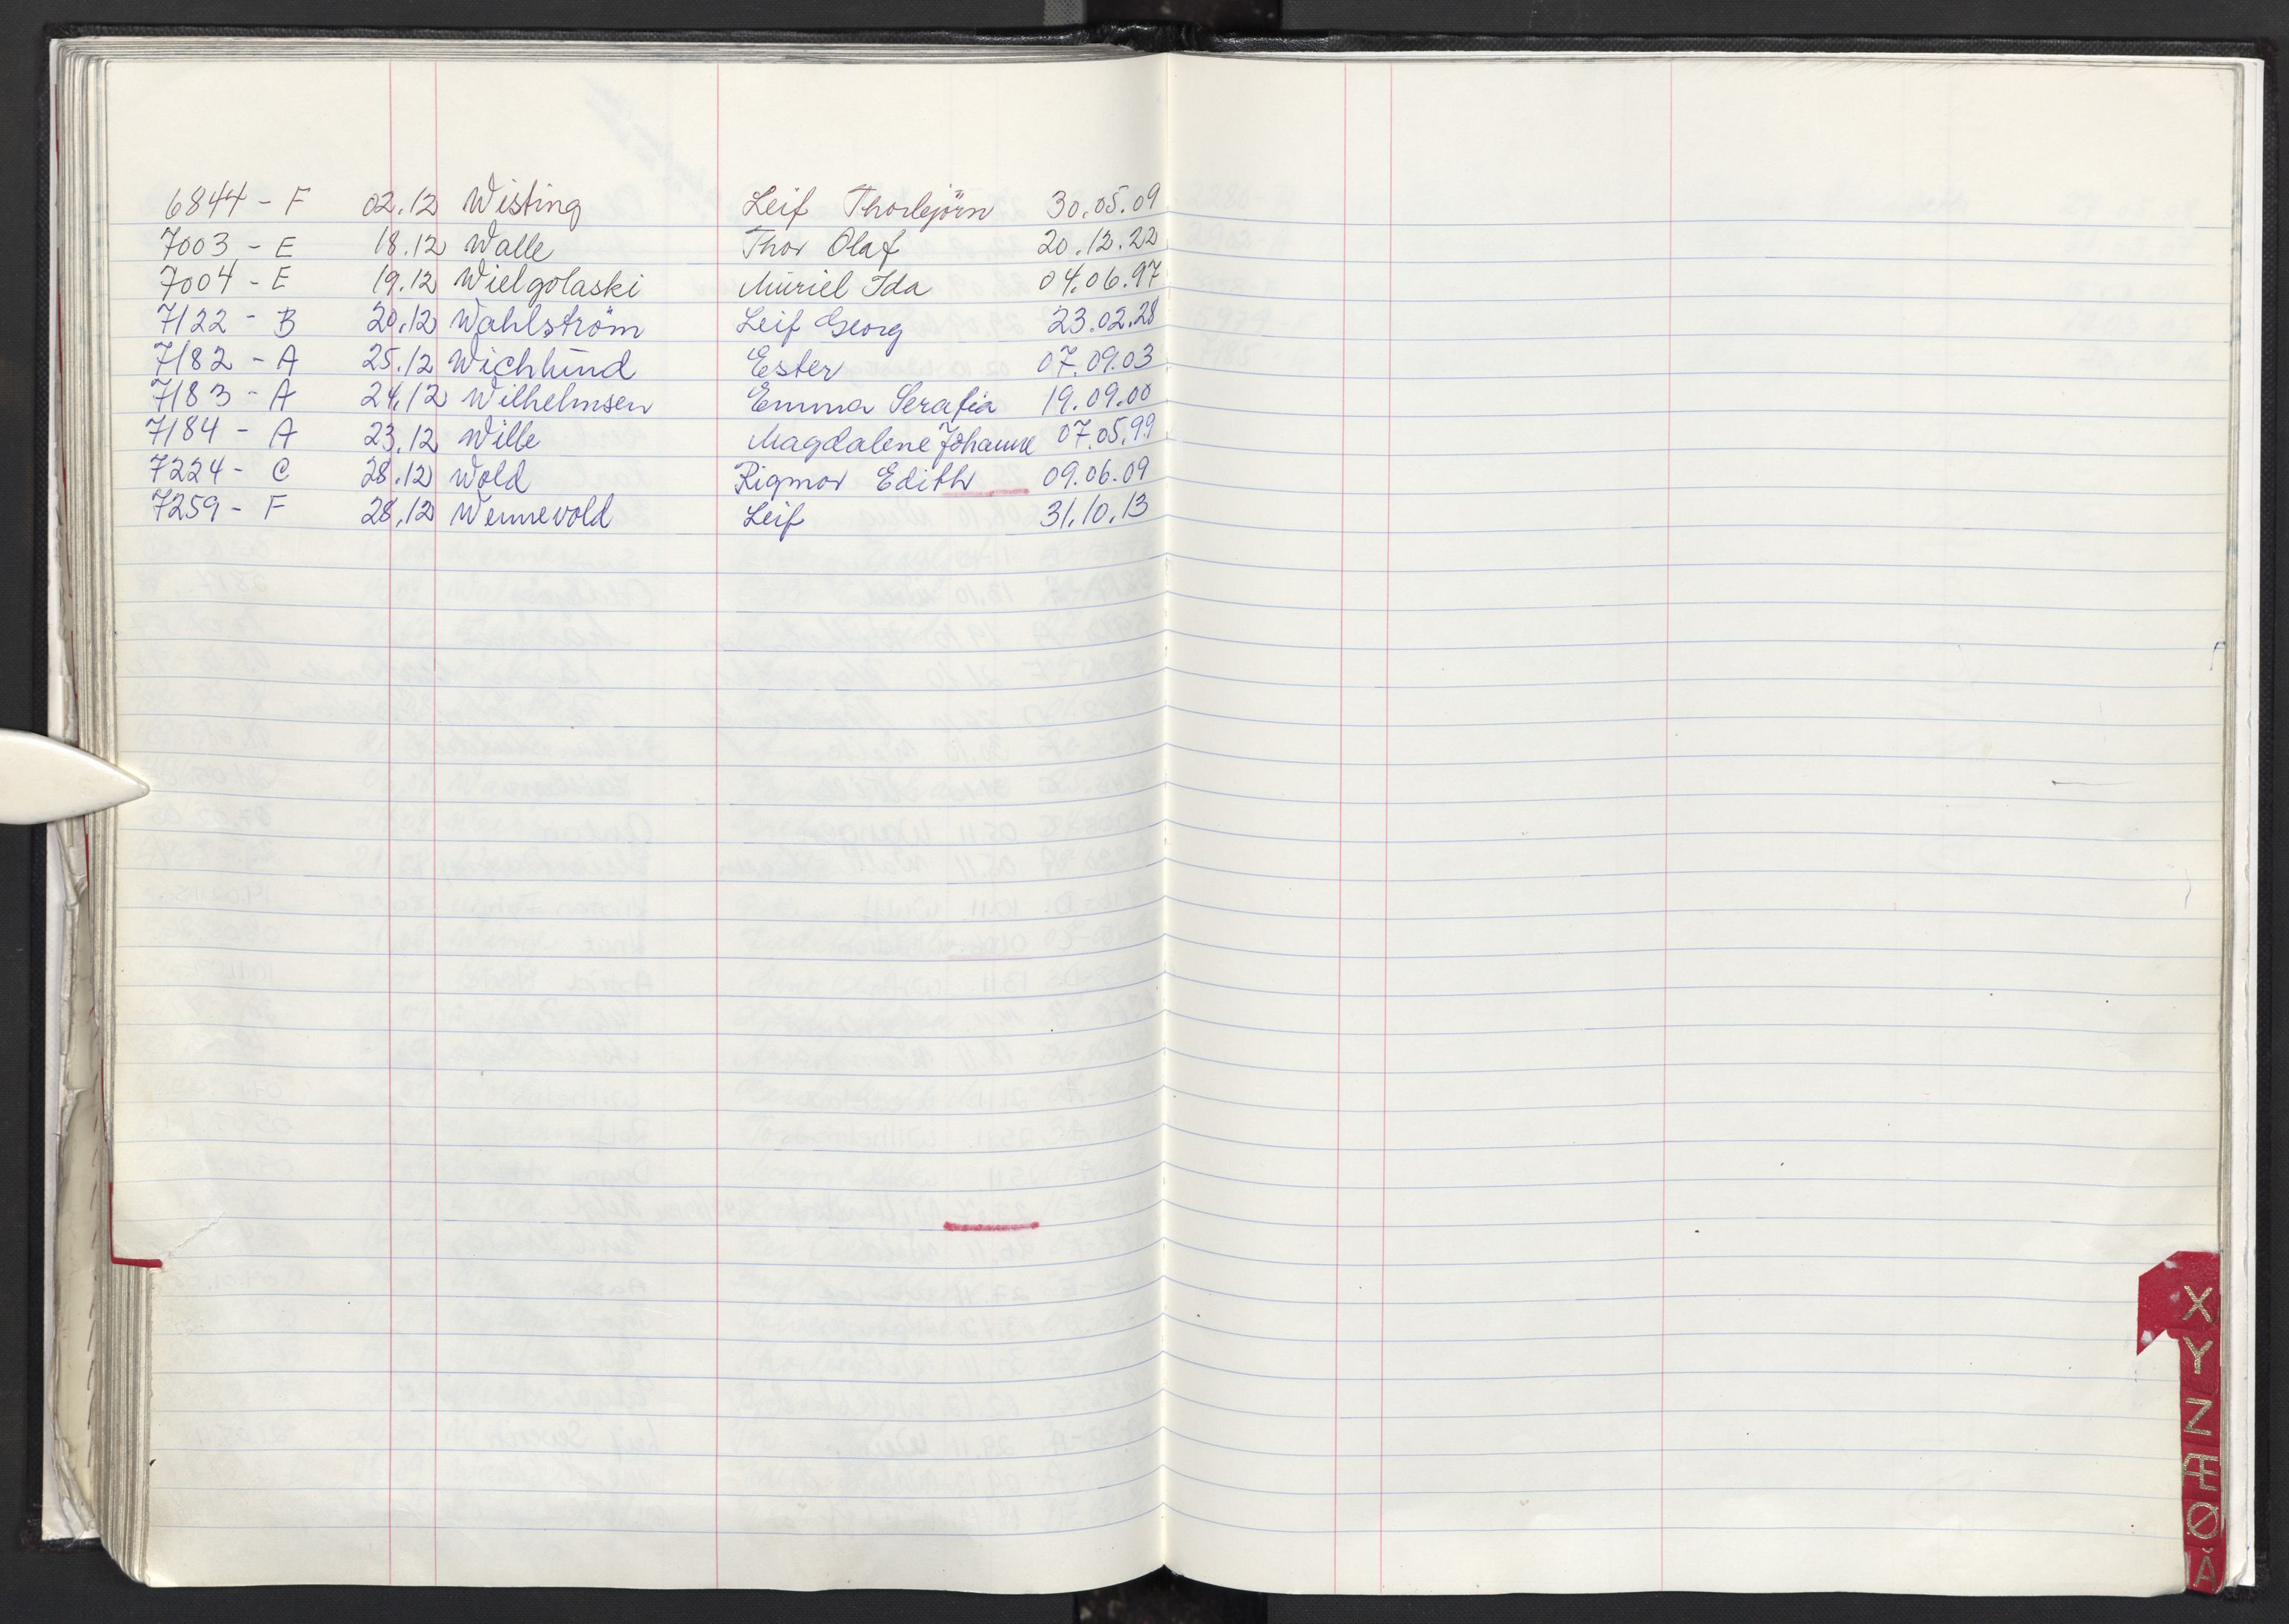 6844 - F 02.12 Wisting Leif Thorbjörn 30.05.09
7003 - E 18.12 Walle Thor Olaf 20.12.22
7004 - E 19.12 Wielgolaski Muriel Ida 04.06.97
7122 - B 20.12 Wahlström Leif Georg 23.02.28
7182 - A 25.12 Wichlund Ester 07.09.03
7183 - A 24.12 Wilhelmsen Emma Serafia 19.09.00
7184 - A 23.12 Wille Magdalene Johanne 07.05.99
7224 - C 28.12 Wold Rigmor Edith 09.06.09
7259 - F 28.12 Wennevold Leif 31.10.13
X
Y
Z
Æ
Ø
Å